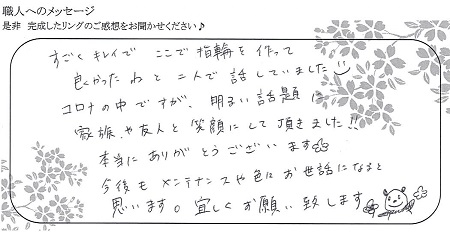 職人へのメッセージ
是非 完成したリングのご感想をお聞かせください♪
すごくキレイで ここで指輪を作って
良かったねと二人で話していました
コロナの中ですが、明るい話題に
家族や友人と笑顔にして頂きました!!
本当にありがとうございます
今後も メンテナンスや色々お世話になると
思います。宜しくお願い致します